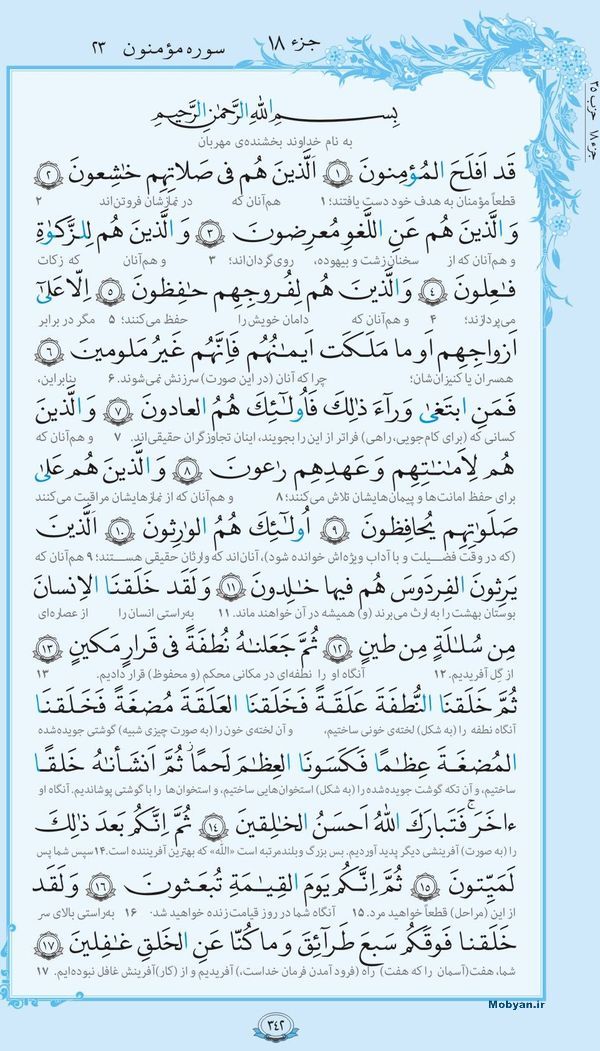 جزء ۱۸
سوره مؤمنون ۲۳
جزء ۱۸ حزب ۳۵
بِسمِ اللهِ الرَّحمٰنِ الرَّحیمِ
به نام خداوند بخشنده‌ی مهربان
قَد اَفلَحَ المُؤمِنونَ ۱ اَلَّذینَ هُم فی صَلاتِهِم خٰشِعونَ ۲
قطعاً مؤمنان به هدف خود دست یافتند؛ ۱ هم‌آنان که در نمازشان فروتن‌اند ۲
وَ الَّذینَ هُم عَنِ اللَّغوِ مُعرِضونَ ۳ وَ الَّذینَ هُم لِلزَّکوٰةِ
و هم‌آنان که از سخنان زشت و بیهوده، روی‌گردان‌اند؛ ۳ و هم‌آنان که زکات
فٰعِلونَ ۴ وَ الَّذینَ هُم لِفُروجِهِم حٰفِظونَ ۵ اِلّا عَلیٰٓ
می‌پردازند؛ ۴ و هم‌آنان که دامان خویش را حفظ می‌کنند؛ ۵ مگر در برابر
اَزواجِهِم اَو ما مَلَکَت اَیمٰنُهُم فَاِنَّهُم غَیرُ مَلومینَ ۶
همسران یا کنیزان‌شان؛ چرا که آنان (در این صورت) سرزنش نمی‌شوند. ۶ بنابراین،
فَمَنِ ابتَغیٰ وَرآءَ ذٰلِکَ فَاُولٰئِکَ هُمُ العادونَ ۷ وَ الَّذینَ
کسانی که (برای کام‌جویی، راهی) فراتر از این را بجویند، اینان تجاوزگران حقیقی‌اند. ۷ و هم‌آنان که
هُم لِاَمٰنٰتِهِم وَ عَهدِهِم رٰعونَ ۸ وَ الَّذینَ هُم عَلیٰ
برای حفظ امانت‌ها و پیمان‌هایشان تلاش می‌کنند؛ ۸ و هم‌آنان که از نمازهایشان مراقبت می‌کنند
صَلَوٰتِهِم یُحافِظونَ ۹ اُولٰئِکَ هُمُ الوٰرِثونَ ۱۰ اَلَّذینَ
(که در وقت فضیلت و با آداب ویژه‌اش خوانده شود)، آنان‌اند که وارثان حقیقی هستند؛ ۹ هم‌آنان که
یَرِثونَ الفِردَوسَ هُم فیها خٰلِدونَ ۱۱ وَ لَقَد خَلَقنَا الاِنسانَ
بوستان بهشت را به ارث می‌برند (و) همیشه در آن خواهند ماند. ۱۱ به‌راستی انسان را از عصاره‌ای
مِن سُلٰلَةٍ مِن طینٍ ۱۲ ثُمَّ جَعَلنٰهُ نُطفَةً فی قَرارٍ مَکینٍ ۱۳
از گِل آفریدیم. ۱۲ آنگاه او را نطفه‌ای در مکانی محکم (و محفوظ) قرار دادیم. ۱۳
ثُمَّ خَلَقنَا النُّطفَةَ عَلَقَةً فَخَلَقنَا العَلَقَةَ مُضغَةً فَخَلَقنَا
آنگاه نطفه را (به شکل) لخته‌ی خونی ساختیم، و آن لخته‌ی خون را (به صورت چیزی شبیه) گوشتی جویده‌شده
المُضغَةَ عِظٰمًا فَکَسَونَا العِظٰمَ لَحمًا ثُمَّ اَنشَأنٰهُ خَلقًا
ساختیم، و آن تکه گوشت جویده‌شده را (به شکل) استخوان‌هایی ساختیم، و استخوان‌ها را با گوشتی پوشاندیم. آنگاه او
ءاخَرَ فَتَبارَکَ اللهُ اَحسَنُ الخٰلِقینَ ۱۴ ثُمَّ اِنَّکُم بَعدَ ذٰلِکَ
را (به صورت) آفرینشی دیگر پدید آوردیم. پس بزرگ و بلندمرتبه است «الله» که بهترین آفریننده است. ۱۴ سپس شما پس
لَمَیِّتونَ ۱۵ ثُمَّ اِنَّکُم یَومَ القِیٰمَةِ تُبعَثونَ ۱۶ وَ لَقَد
از این (مراحل) قطعاً خواهید مرد. ۱۵ آنگاه شما در روز قیامت زنده خواهید شد. ۱۶ به‌راستی بالای سر
خَلَقنا فَوقَکُم سَبعَ طَرآئِقَ وَ ما کُنّا عَنِ الخَلقِ غٰفِلینَ ۱۷
شما، هفت (آسمان را که هفت) راه (فرود آمدن فرمان خداست،) آفریدیم و از (کار) آفرینش غافل نبوده‌ایم. ۱۷
۳۴۲
Mobyan.ir